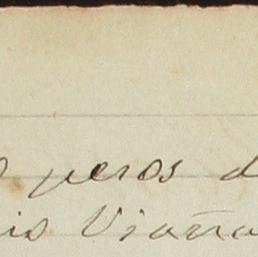 pesos d
is Viaña